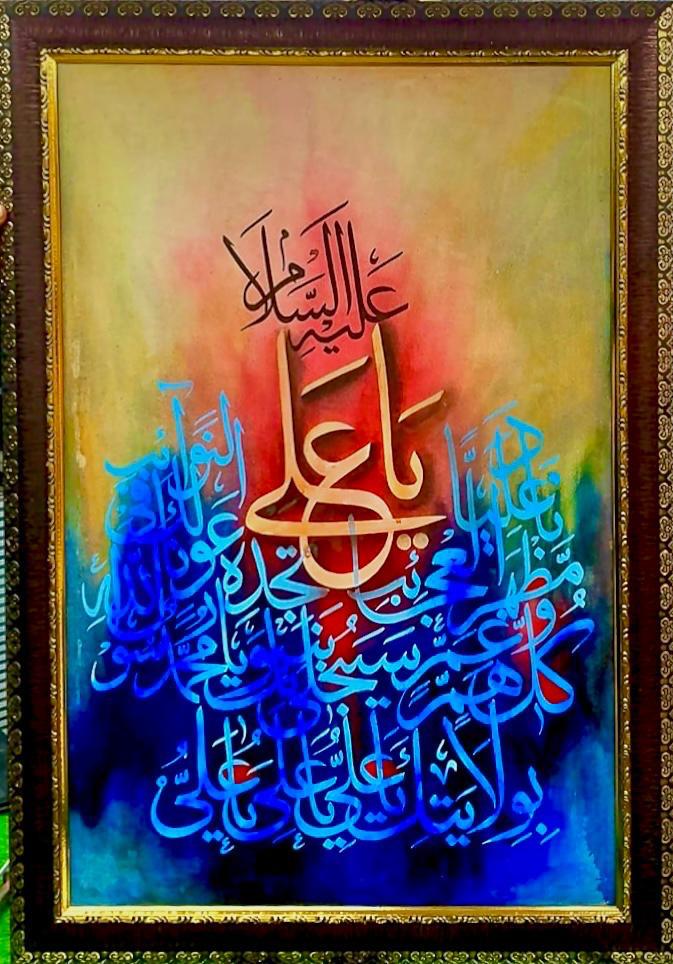 عَلَيهِ السَّلَام
يَا عَلَى
نَادِ عَلِيًّا
مَظْهَرَ الْعَجَائِبِ تَجِدْهُ
عَوْنًا لَكَ فِي النَّوَآئِبِ
كُلُّ هَمٍّ وَّغَمٍّ سَيَنْجَلِي
يَا مُحَمَّدُ رَسُوْلَ اللهِ
بِوِلَايَتِكَ يَا عَلِيُّ يَا عَلِيُّ يَا عَلِيُّ